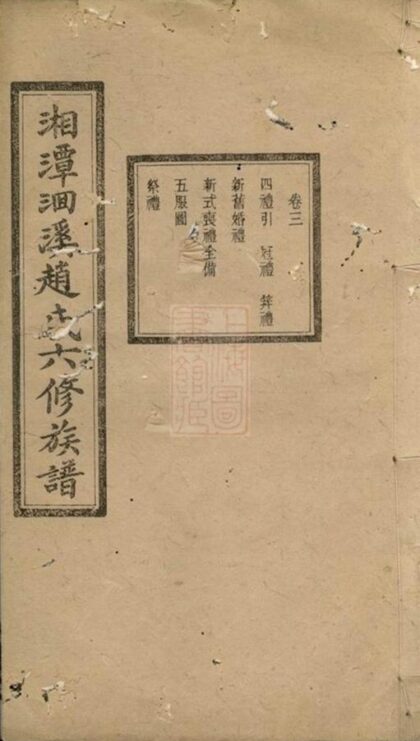 湘潭泂溪趙氏六修族譜
卷三
四禮引 冠禮 笄禮
新舊婚禮
新式喪禮全備
五服圖
祭禮